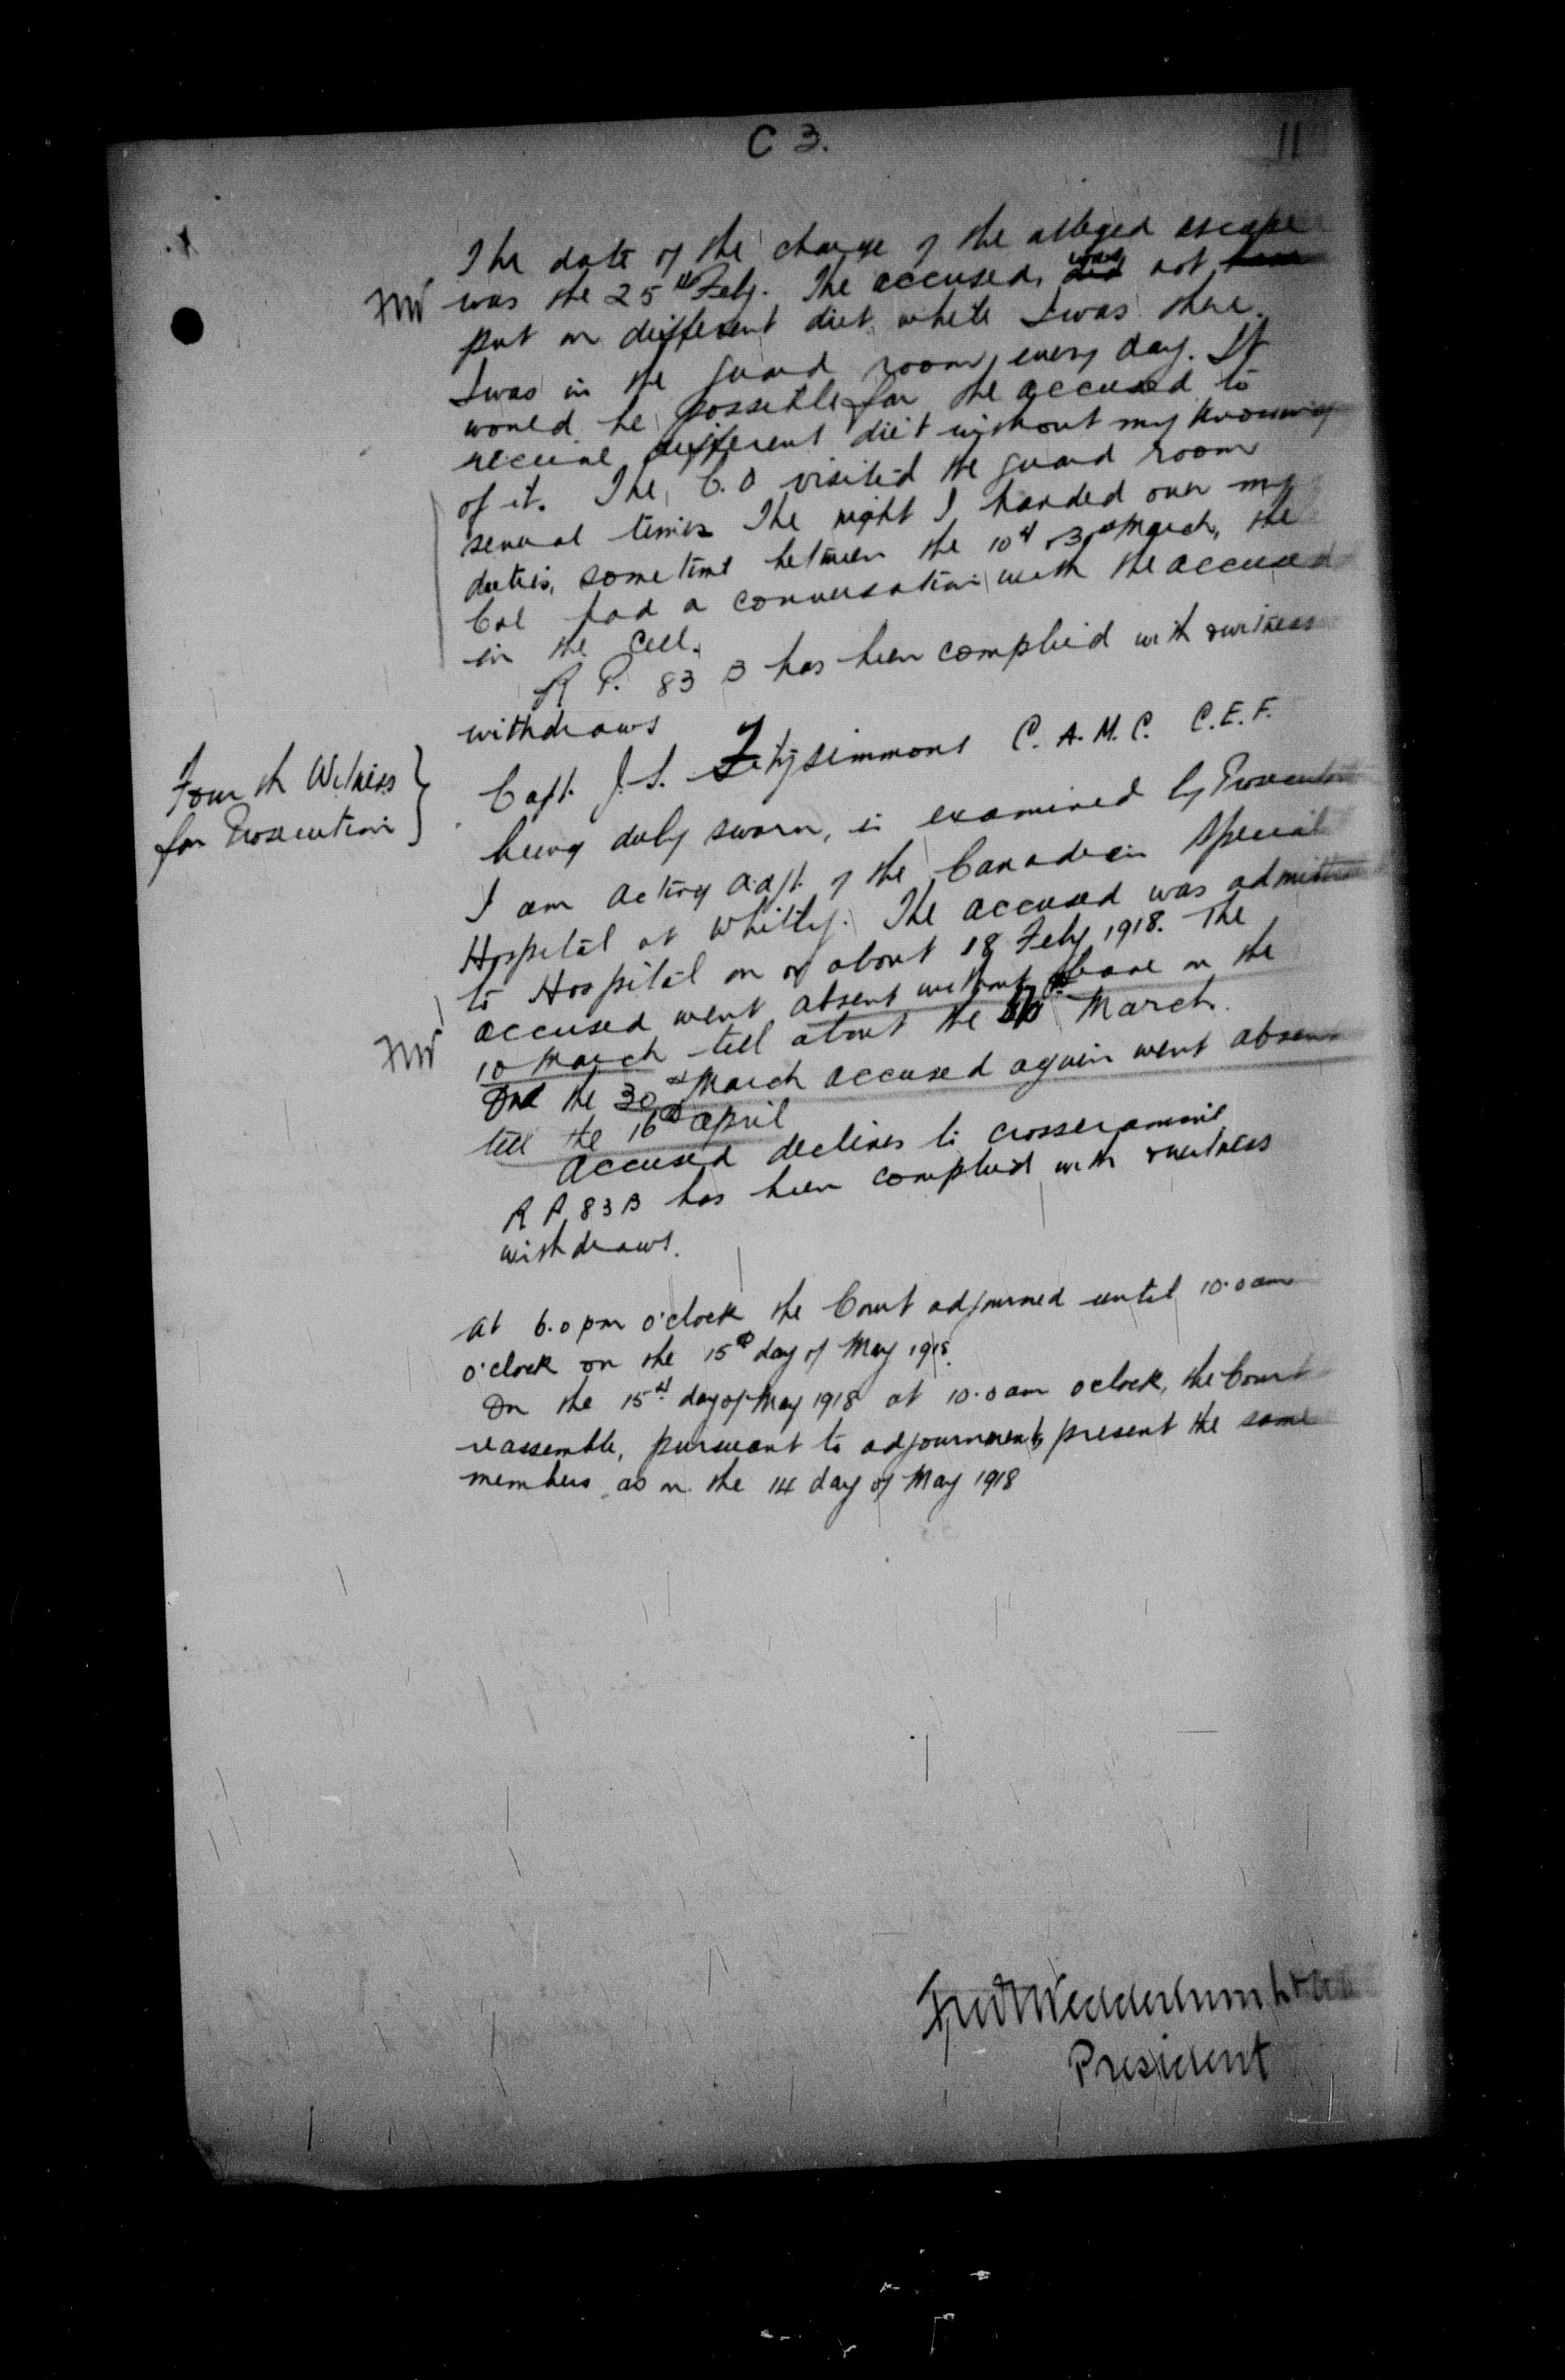 C 3.
11
The date of the charge of the alleged escape
FW was the 25th Feby. The accused was did not
put on different diet while I was there.
I was in the guard room every day. It
would be possible for the accused to
receive different diet without my knowing
of it. The C.O visited the guard room
several times. The night I handed over my
duties, sometime between the 10th March, the
Col had a conversation with the accused
in the cell.
R P. 83 B has been complied with & witness
withdraws
Fourth Witness
for Prosecution
Capt. J. S. Fitzsimmons C. A. M. C. C. E. F.
being duly sworn, is examined by Prosecutor
I am acting adjt. of the Canadian Special
Hospital at Whitley. The accused was admitted
to Hospital on or about 18 Feby 1918. The
accused went absent without leave on the
FW 10 March till about the March.
On the 30th March accused again went absent
till the 16th April
Accused declines to crossexamine
R P 83 B has been complied with & witness
withdraws.
At 6.0 pm o'clock the Court adjourned until 10.0 am
o'clock on the 15th day of May 1918.
On the 15th day of May 1918 at 10.0 am oclock, the Court
reassemble, pursuant to adjournment, present the same
members as on the 14 day of May 1918
Wedderburn
President